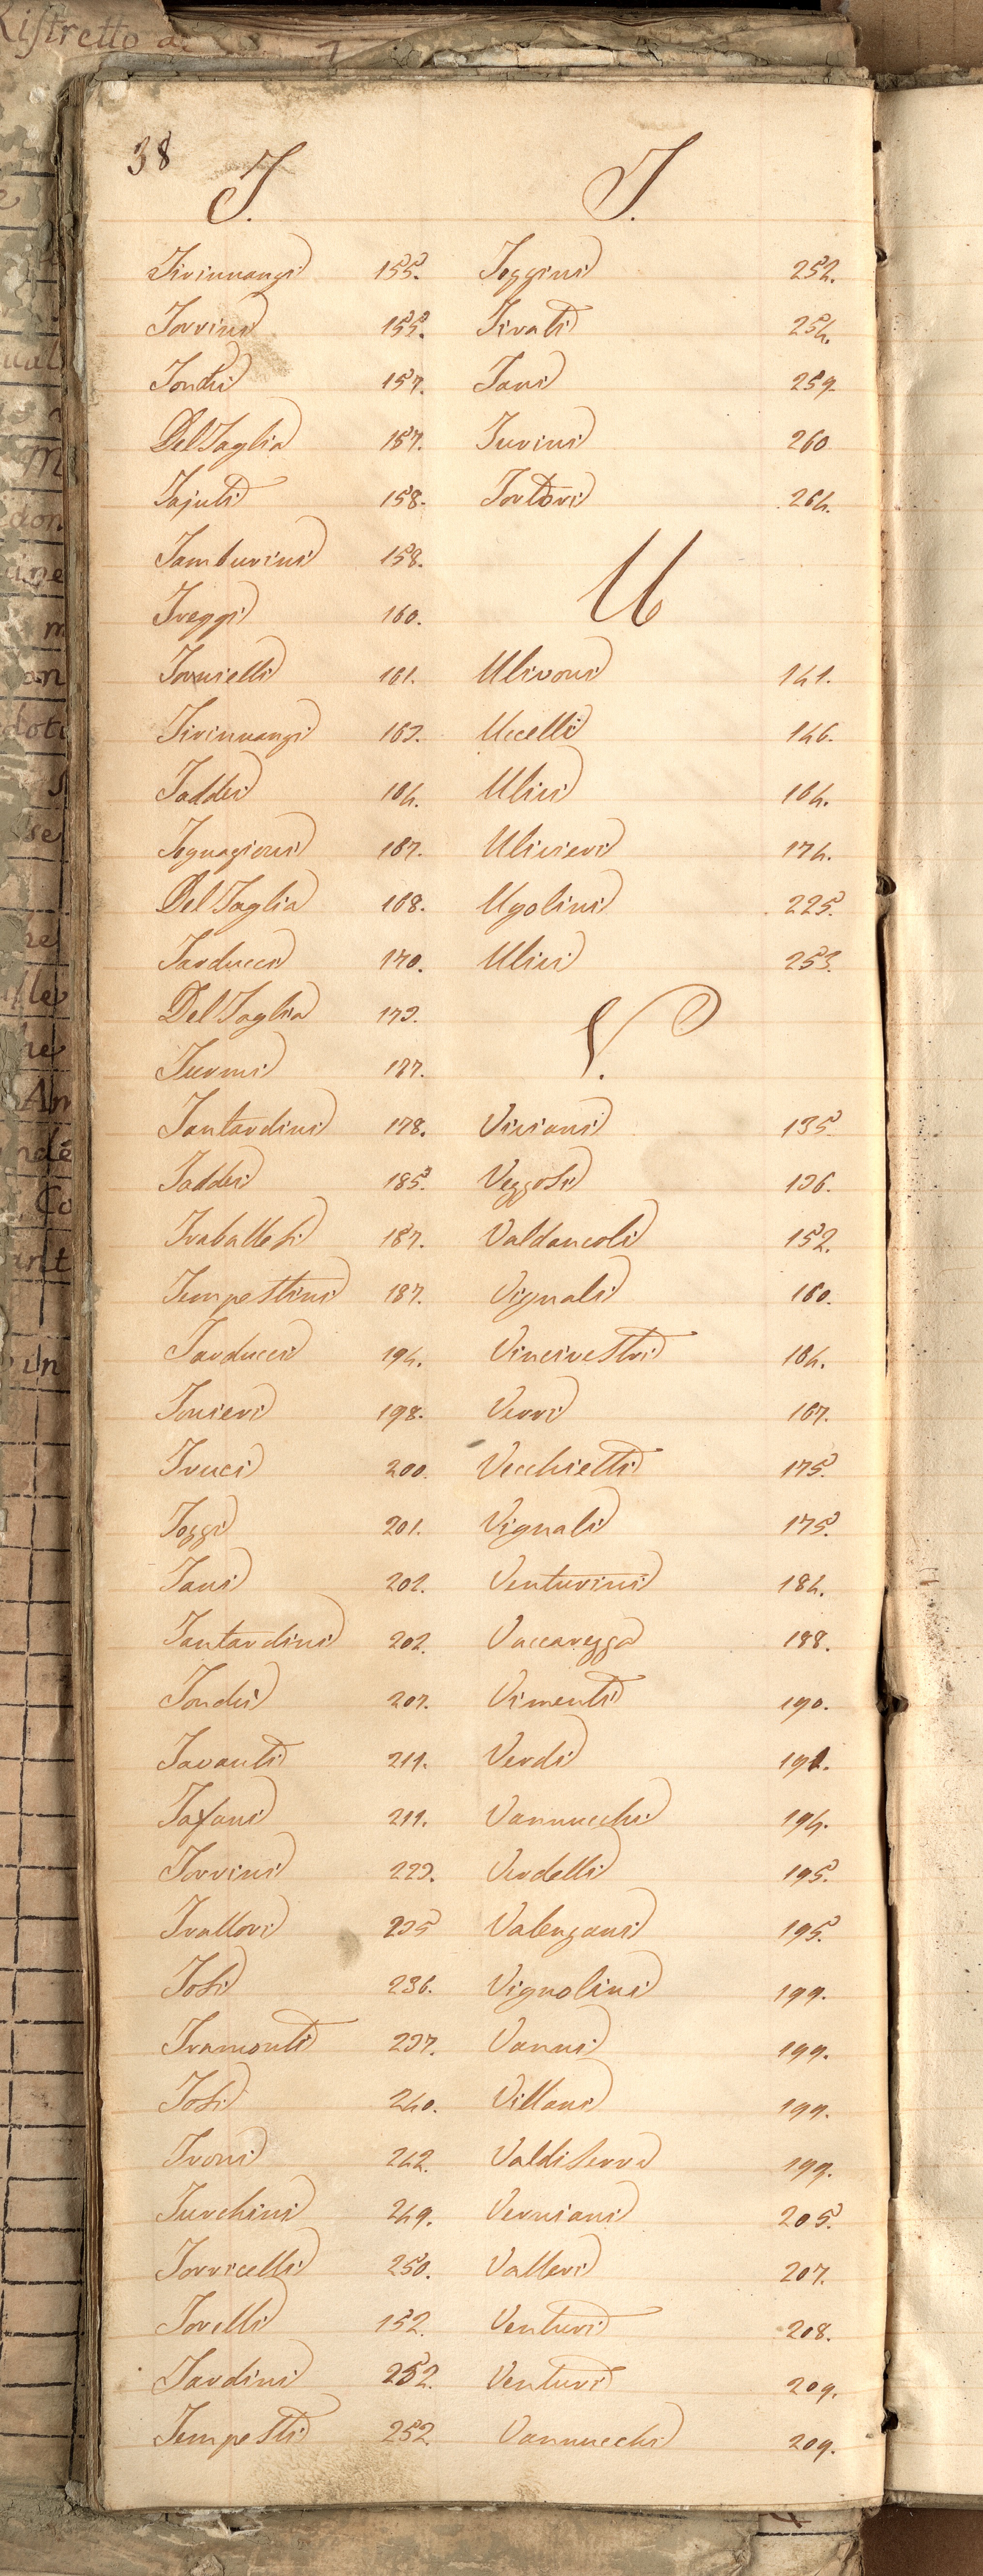 Ristretto d
38
T.
Tirinnanzi 155.
Torrini 155.
Tondi 157.
Del Taglia 157.
Tajuti 158.
Tamburini 158.
Treggi 160.
Tornielli 161.
Tirinnanzi 163.
Taddei 164.
Tognagioni 167.
Del Taglia 168.
Tarducci 170.
Del Taglia 173.
Turini 177.
Tantardini 178.
Taddei 185.
Traballesi 187.
Tempestini 187.
Tarducci 194.
Tonieri 198.
Truci 200.
Tozzi 201.
Tani 202.
Tantardini 202.
Tondi 207.
Tavanti 211.
Tafani 211.
Torrini 223.
Trallori 235
Tosi 236.
Tramonti 237.
Tosi 240.
Troni 242.
Turchini 249.
Torricelli 250.
Torelli 152.
Tardini 252.
Tempesti 252.
T.
Tozzini 252.
Tirati 254.
Tani 259.
Turini 260
Tortori 264.
U
Ulivoni 141.
Uccelli 146.
Ulivi 164.
Ulivieri 174.
Ugolini 225.
Ulivi 253.
V.
Viviani 135.
Vezzosi 136.
Valdancoli 152.
Vignali 160.
Vincivestri 164.
Verri 167.
Vecchietti 175.
Vignali 175.
Venturini 184.
Vaccarezza 188.
Vimenti 190.
Verdi 191.
Vannucchi 194.
Verdelli 195.
Valenzani 195.
Vignolini 199.
Vanni 199.
Villani 199.
Valdiserra 199.
Verniani 205.
Valleri 207.
Venturi 208.
Venturi 209.
Vannucchi 209.